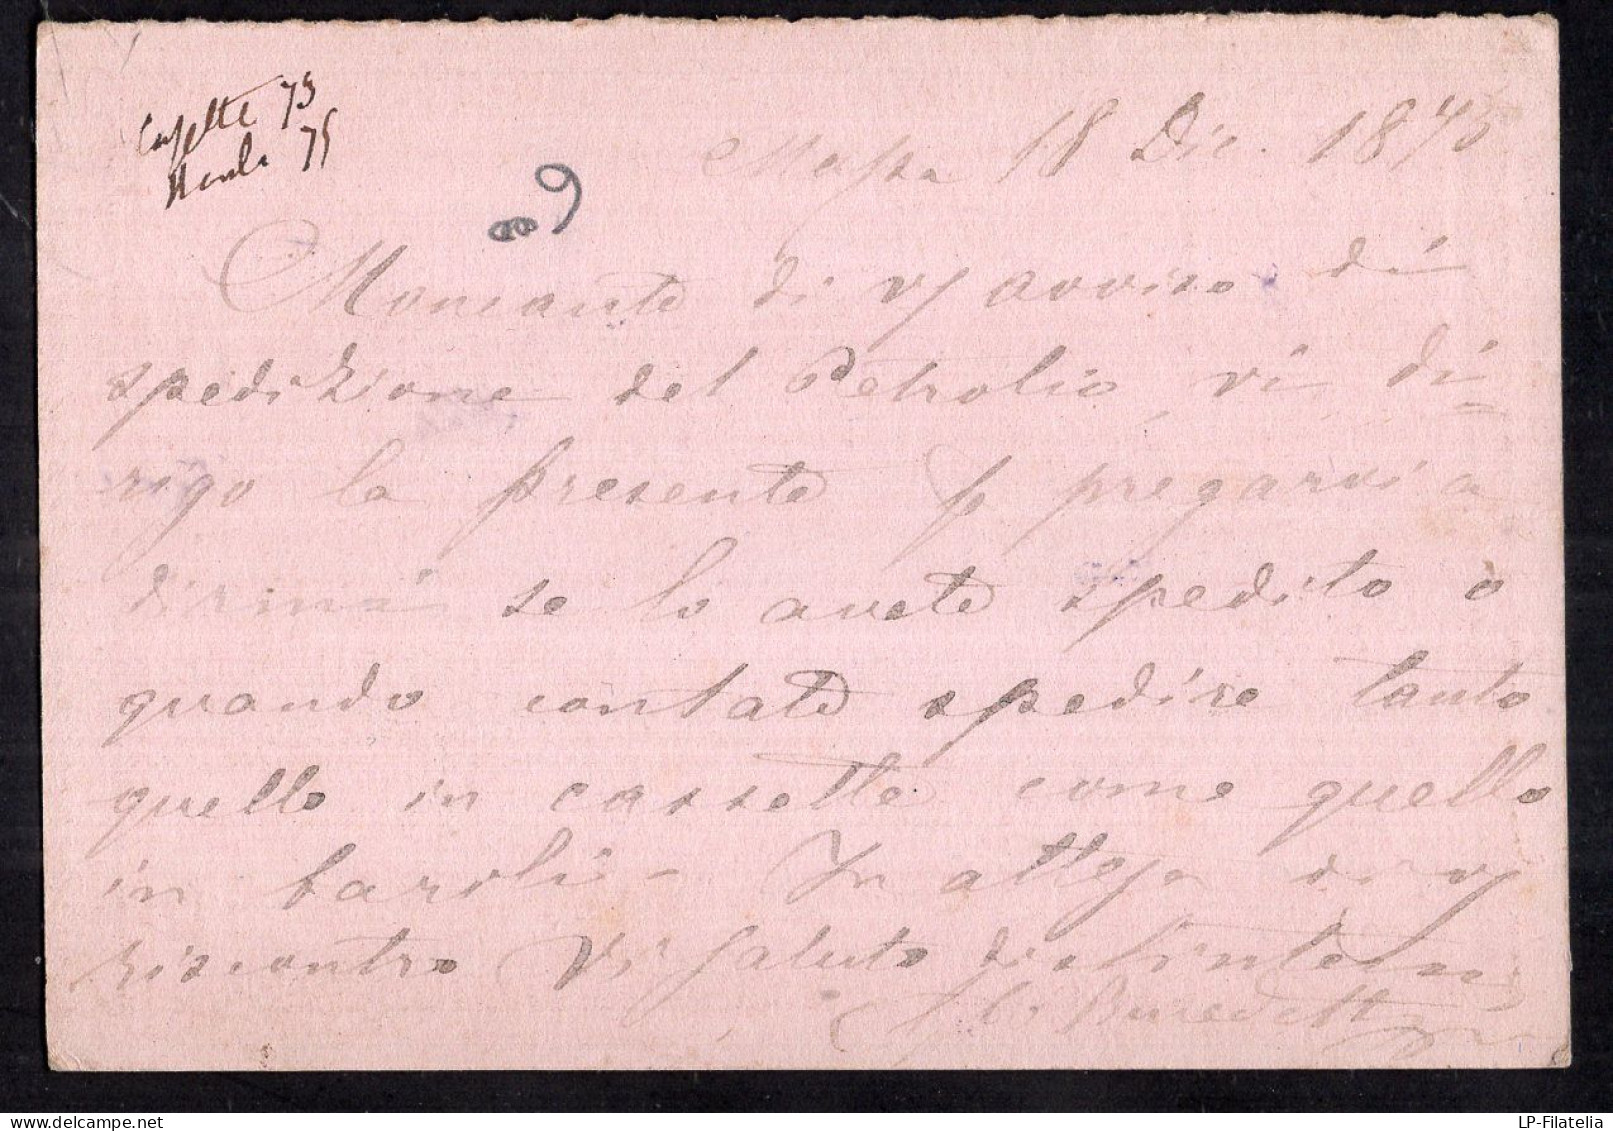 Cassette 73
75
Massa 18 Dic. 1875
Mancante di Vs avviso di
spedizione del Petrolio, vi di=
rigo la presente p pregarvi a
dirmi se lo avete spedito o
quando contate spedire tanto
quello in cassette come quello
in barili - In attesa di Vs
riscontro Vi saluto distintam
Benedetti
LP-Filatelia